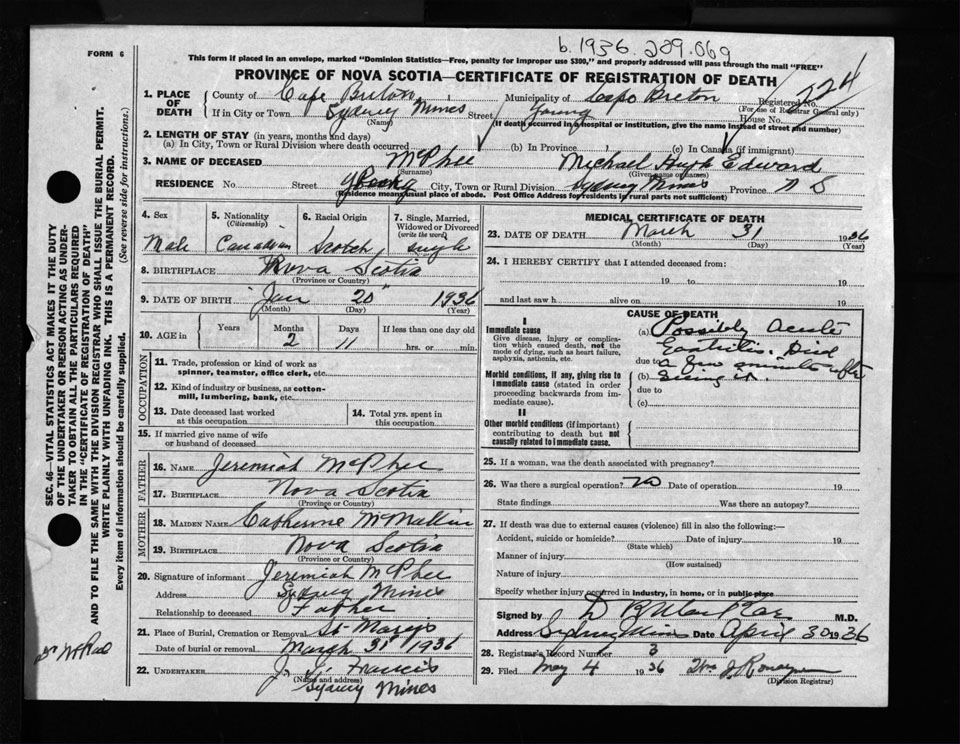 b. 1936. 289.069
FORM 6
This form if placed in an envelope, marked "Dominion Statistics—Free, penalty for improper use $300," and properly addressed will pass through the mail "FREE"
PROVINCE OF NOVA SCOTIA—CERTIFICATE OF REGISTRATION OF DEATH
1. PLACE OF DEATH County of Cape Breton Municipality of Cape Breton Registered No. 324
(For use of Registrar General only)
If in City or Town Sydney Mines Street Young House No.
(Name) (If death occurred in a hospital or institution, give the name instead of street and number)
2. LENGTH OF STAY (in years, months and days)
(a) In City, Town or Rural Division where death occurred (b) In Province (c) In Canada (if immigrant)
3. NAME OF DECEASED McPhee Michael Hugh Edward
(Surname) (Given name or names)
RESIDENCE No. Street City, Town or Rural Division Sydney Mines Province N S
(Residence means usual place of abode. Post Office Address for residents in rural parts not sufficient)
4. Sex 5. Nationality (Citizenship) 6. Racial Origin 7. Single, Married, Widowed or Divorced (write the word)
Male Canadian Scotch single
8. BIRTHPLACE Nova Scotia
(Province or Country)
9. DATE OF BIRTH Jan 20 1936
(Month) (Day) (Year)
10. AGE in Years Months Days If less than one day old
2 11 hrs. or min.
OCCUPATION
11. Trade, profession or kind of work as spinner, teamster, office clerk, etc.
12. Kind of industry or business, as cotton-mill, lumbering, bank, etc.
13. Date deceased last worked at this occupation
14. Total yrs. spent in this occupation
15. If married give name of wife or husband of deceased
FATHER
16. NAME Jeremiah McPhee
17. BIRTHPLACE Nova Scotia
(Province or Country)
MOTHER
18. MAIDEN NAME Catherine McMullin
19. BIRTHPLACE Nova Scotia
(Province or Country)
20. Signature of informant Jeremiah McPhee
Address Sydney Mines
Relationship to deceased Father
21. Place of Burial, Cremation or Removal St Marys
Date of burial or removal March 31 1936
22. UNDERTAKER J. Francis
(Name and address) Sydney Mines
MEDICAL CERTIFICATE OF DEATH
23. DATE OF DEATH March 31 1936
(Month) (Day) (Year)
24. I HEREBY CERTIFY that I attended deceased from:
19 to 19
and last saw h alive on 19
CAUSE OF DEATH
I
Immediate cause
Give disease, injury or complication which caused death, not the mode of dying, such as heart failure, asphyxia, asthenia, etc.
Morbid conditions, if any, giving rise to immediate cause (stated in order proceeding backwards from immediate cause).
II
Other morbid conditions (if important) contributing to death but not causally related to immediate cause.
(a) Possibly Acute
Gastritis. Died
due to a few minutes after
(b) seeing it.
due to
(c)
25. If a woman, was the death associated with pregnancy?
26. Was there a surgical operation? no Date of operation 19
State findings Was there an autopsy?
27. If death was due to external causes (violence) fill in also the following:—
Accident, suicide or homicide? Date of injury 19
(State which)
Manner of injury
(How sustained)
Nature of injury
Specify whether injury occurred in industry, in home, or in public place
Signed by M.D.
Address Sydney Mines Date April 30 1936
28. Registrar's Record Number 3
29. Filed May 4 1936
(Division Registrar)
SEC. 46—VITAL STATISTICS ACT MAKES IT THE DUTY
OF THE UNDERTAKER OR PERSON ACTING AS UNDER-
TAKER TO OBTAIN ALL THE PARTICULARS REQUIRED
IN THE "CERTIFICATE OF REGISTRATION OF DEATH"
AND TO FILE THE SAME WITH THE DIVISION REGISTRAR WHO SHALL ISSUE THE BURIAL PERMIT.
WRITE PLAINLY WITH UNFADING INK. THIS IS A PERMANENT RECORD.
Every item of information should be carefully supplied. (See reverse side for instructions.)